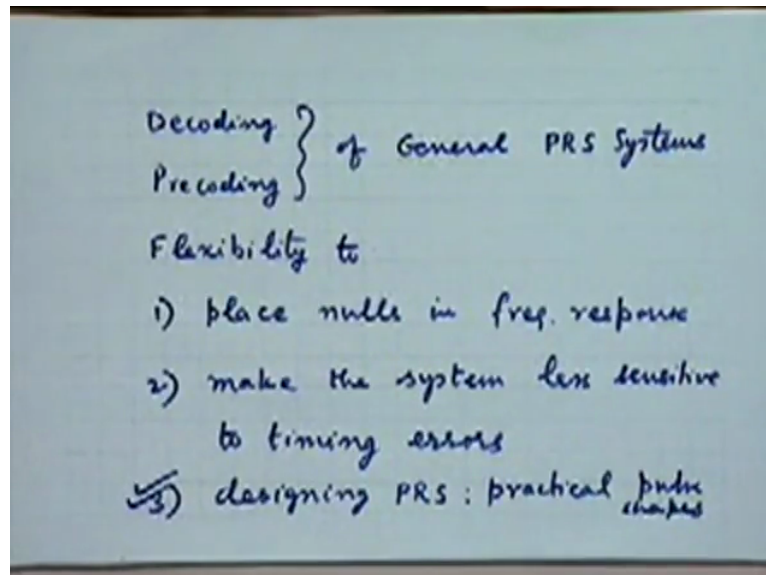 Decoding
Precoding } of General PRS Systems
Flexibility to
1) place nulls in freq. response
2) make the system less sensitive
to timing errors
3) designing PRS : practical pulse
shapes